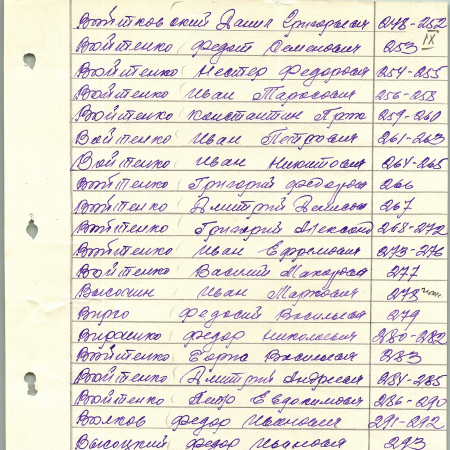 Войтковский Данил Григорьевич 248-252
Войтенко Федот Семенович 253 IX
Войтенко Нестер Федорович 254-255
Войтенко Иван Тарасович 256-258
Войтенко Константин 259-260
Войтенко Иван Петрович 261-263
Войтенко Иван Никитович 264-265
Войтенко Григорий Федорович 266
Войтенко Дмитрий Денисов 267
Войтенко Григорий Александ 268-272
Войтенко Иван Ефремович 273-276
Войтенко Василий Макарович 277
Высочин Иван Маркович 278
Вирго Федосий Васильевич 279
Федор Николаевич 280-282
Войтенко Василович 283
Войтенко Дмитрий Андреевич 284-285
Войтенко Петр Евдокимович 286-290
Волков Федор Иванович 291-292
Высоцкий Федор Иванович 293